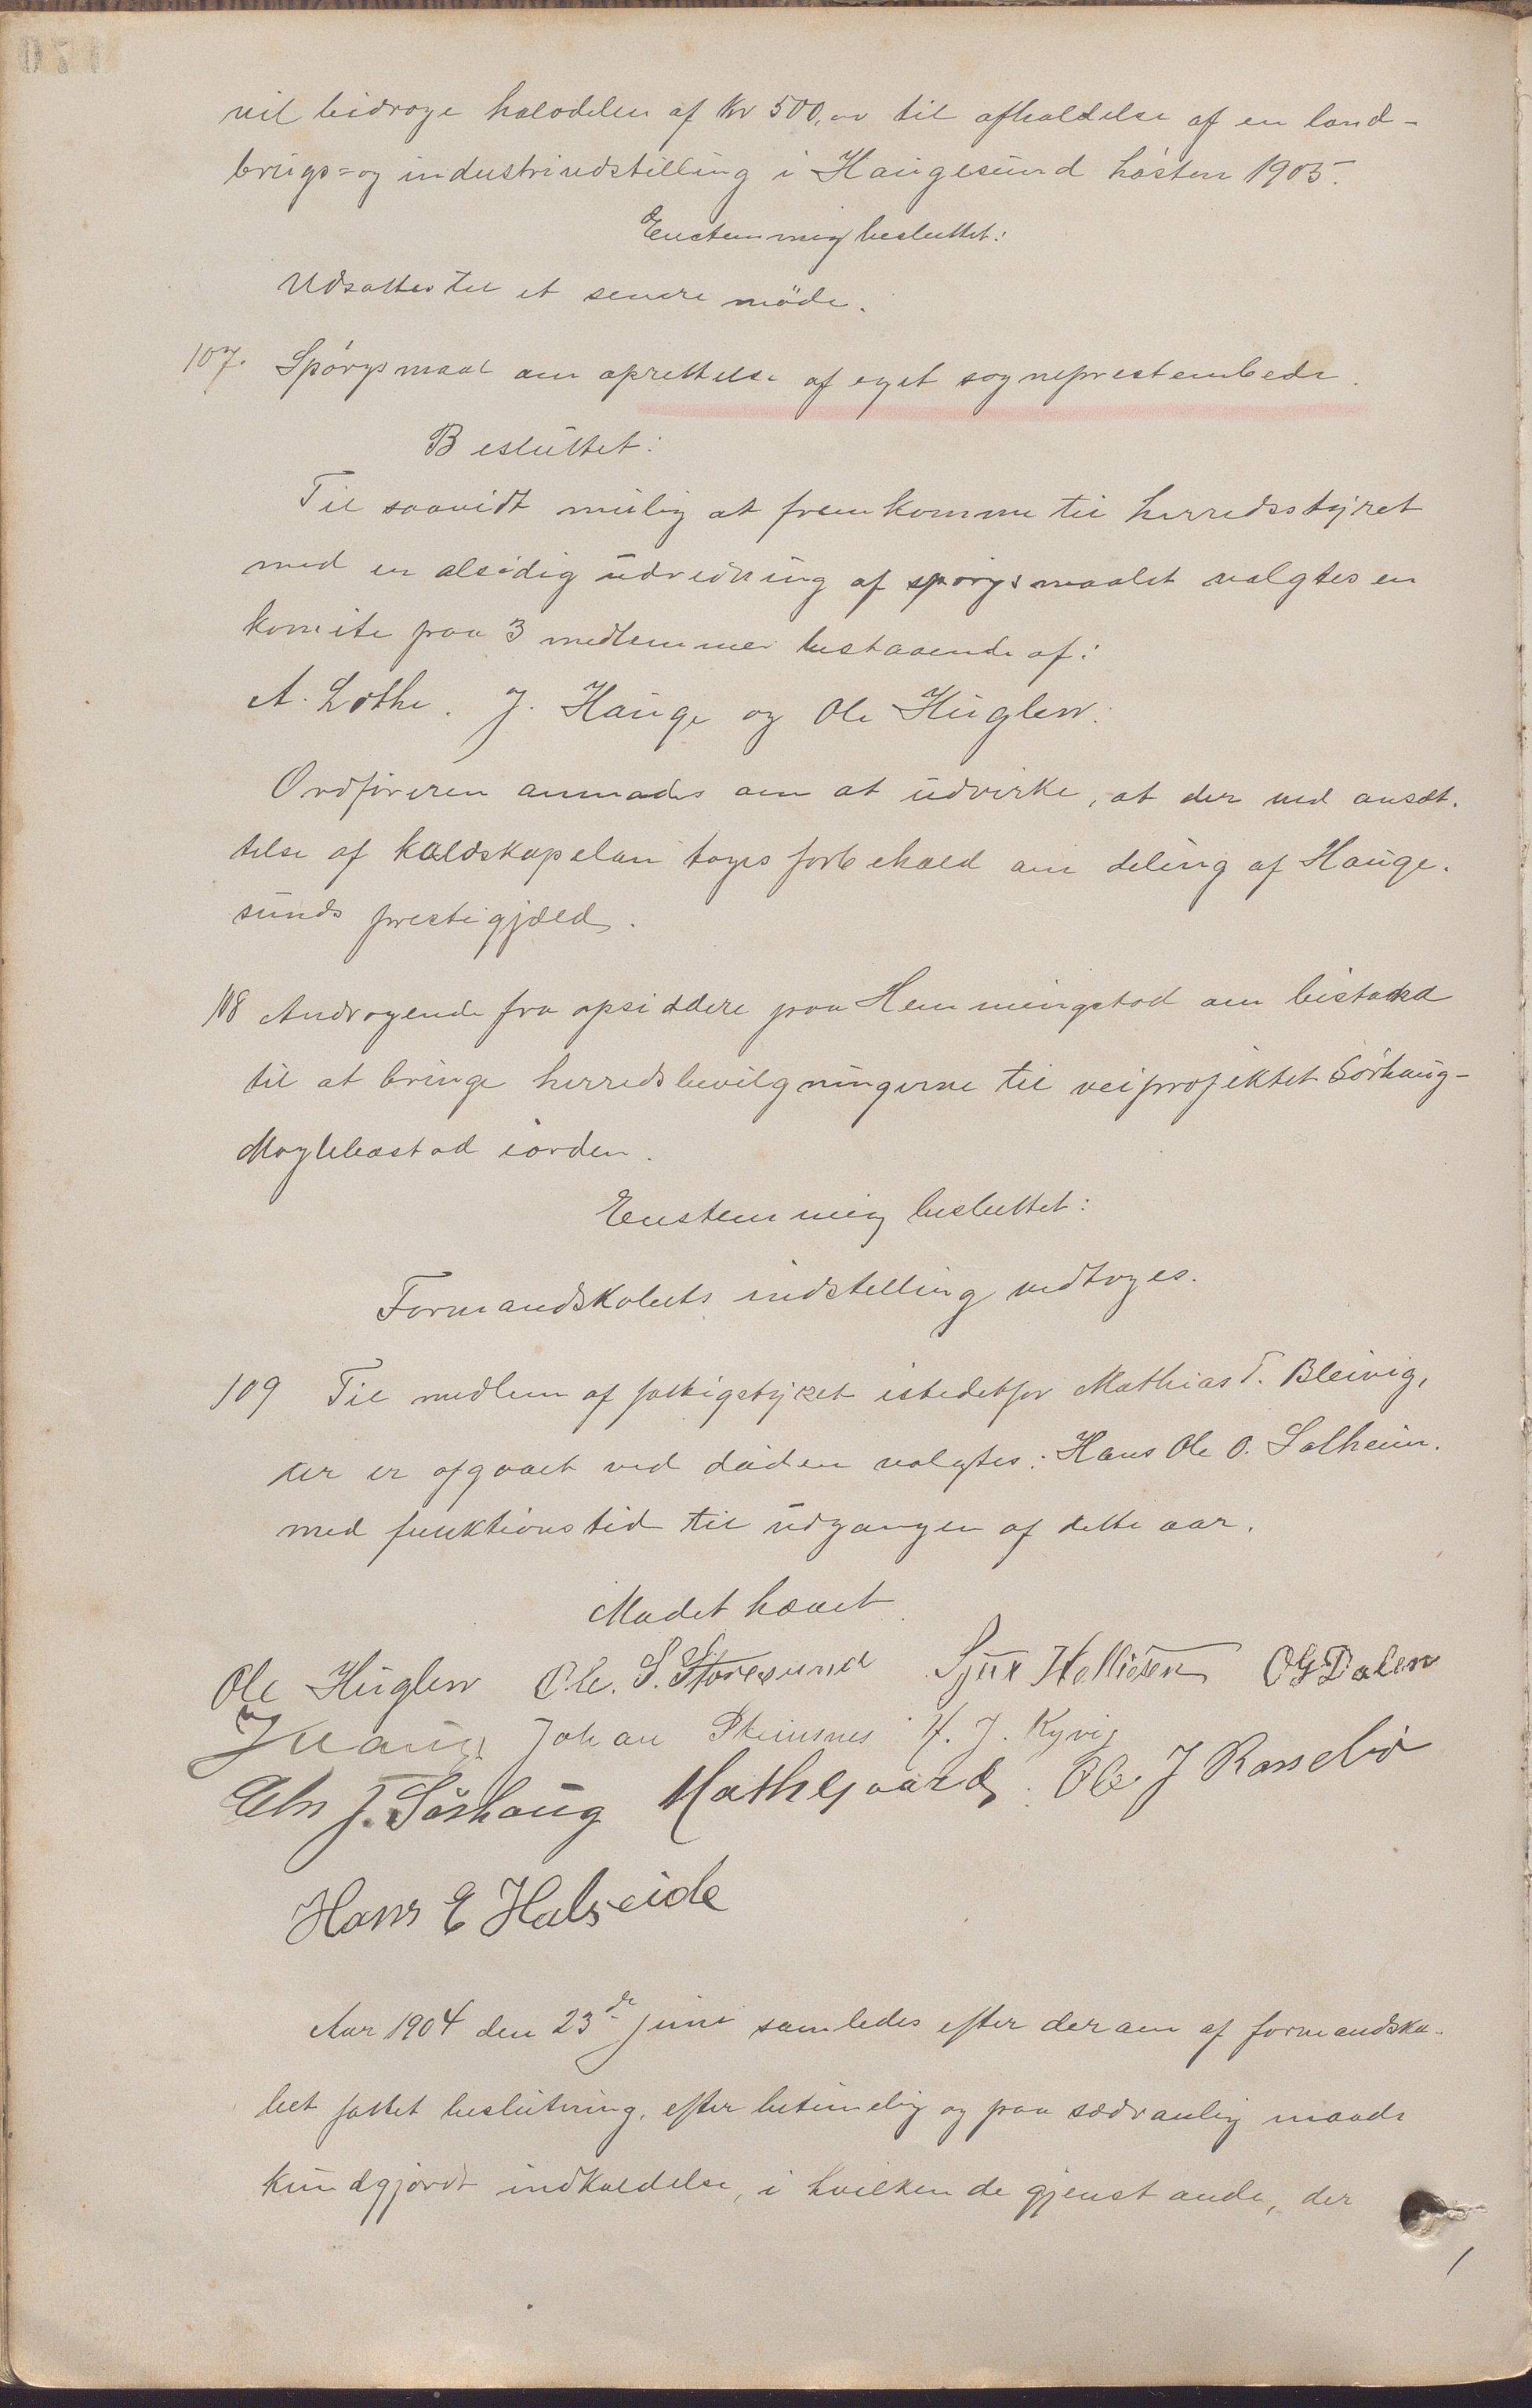 vil bidrage halvdelen af Kr 500,00 til afholdelse af en land-
brugs- og industriudstilling i Haugesund høsten 1905.
Enstemmig besluttet:
Udsattes til et senere møde.
107. Spørgsmaal om oprettelse af eget sogneprestembede.
Besluttet:
Til saavidt mulig at fremkomme til herredsstyret
med en alsidig udredning af spørgsmaalet valgtes en
komite paa 3 medlemmer bestaaende af:
A. Lothe. J. Hauge og Ole Huglen.
Ordføreren anmodes om at udvirke, at der ved ansæt-
telse af kaldskapelan tages forbehold om deling af Hauge-
sunds prestegjæld.
108 Andragende fra opsiddere paa Hemmingstad om bistand
til at bringe herredsbevilgningerne til veiprojektet Sørhaug-
Moglebastad iorden.
Enstemmig besluttet:
Formandskabets indstilling vedtoges.
109 Til medlem af fattigstyret istedetfor Mathias T. Bleivig,
der er afgaaet ved døden valgtes: Hans Ole O. Solheim.
med funktionstid til udgangen af dette aar.
Mødet hævet.
Ole Huglen Ole. S. Storesund Sjur Hellicsen OGDalen
JHauge Johan Steinsnes H. J. Kyvig
Chr J. Sørhaug Math Gaard. Ole J Rossebø
Hans E Halseide
Aar 1904 den 23de juni samledes efter derom af formandska-
bet fattet beslutning, efter betimelig og paa sædvanlig maade
kundgjordt indkaldelse, i hvilken de gjenstande, der